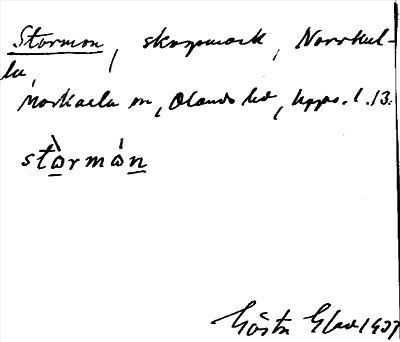 Stormon, skogsmark, Norrkul-
la,
Morkarla sn, Olands hd, Upps. l. 13.
stɷ̀rmɷ́n
Gösta Elad 1937